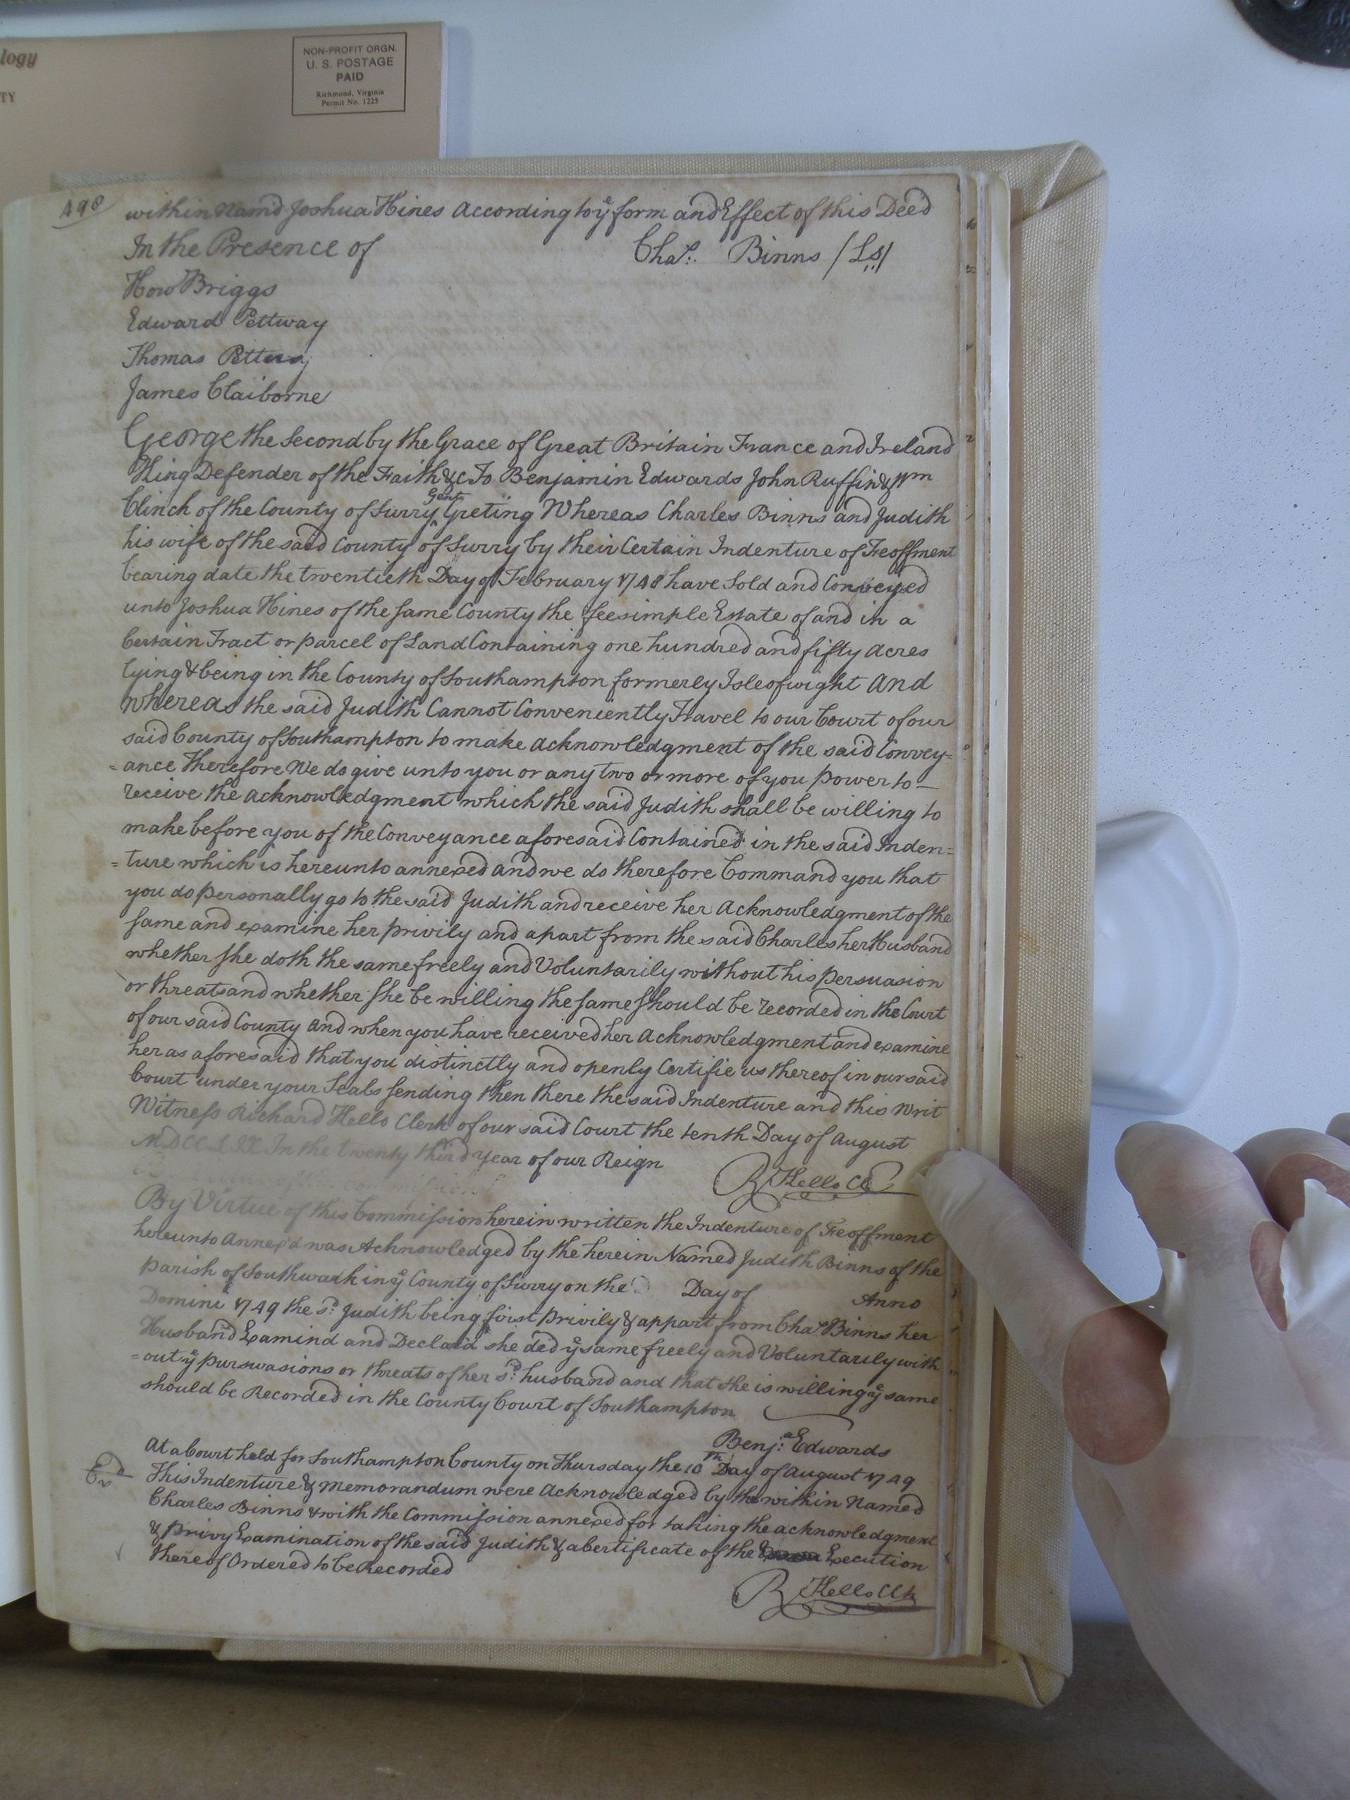 logy
TY
NON-PROFIT ORGN.
U. S. POSTAGE
PAID
Richmond, Virginia
Permit No. 1225
498
within Namd Joshua Hines According to ye form and Effect of this Deed
In the Presence of Chas. Binns / Ls /
How Briggs
Edward Pettway
Thomas
James Claiborne
George the Second by the Grace of Great Britain France and Ireland
King Defender of the Faith &c To Benjamin Edwards John Ruffin & Wm
Clinch of the County of Surry Gent Greting Whereas Charles Binns and Judith
his wife of the said County of Surry by their Certain Indenture of Feoffment
bearing date the twentieth Day of February 1748 have Sold and Conveyed
unto Joshua Hines of the same County the feesimple Estate of and in a
Certain Tract or parcel of Land Containing one hundred and fifty Acres
lying & being in the County of Southampton formerly Isle of wight And
whereas the said Judith Cannot Conveniently Travel to our Court of our
said County of Southampton to make Acknowledgment of the said Convey=
=ance Therefore We do give unto you or any two or more of you power to
receive the acknowledgment which the said Judith shall be willing to
make before you of the Conveyance aforesaid Contained in the said Inden=
=ture which is hereunto annexed and we do therefore Command you that
you do personally go to the said Judith and receive her Acknowledgment of the
same and examine her privily and apart from the said Charles her Husband
whether she doth the same freely and Voluntarily without his persuasion
or threats and whether she be willing the same should be recorded in the Court
of our said County and when you have received her Acknowledgment and examine
her as aforesaid that you distinctly and openly Certifie us thereof in our said
Court under your Seals sending then there the said Indenture and this Writ
Witness Richard Hello Clerk of our said Court the tenth Day of August
In the twenty third year of our Reign R Hello Cl
By Virtue of this Commission herein written the Indenture of Feoffment
hereunto Annex'd was Acknowledged by the herein Named Judith Binns of the
parish of Southwark in ye County of Surry on the Day of Anno
Domini 1749 the sd. Judith being first Privily & appart from Chas Binns her
Husband Examind and Declaid she ded ye same freely and Voluntarily with
=out ye purswasions or threats of her sd. husband and that she is willing ye same
should be Recorded in the County Court of Southampton
Benja. Edwards
At a Court held for Southampton County on Thursday the 10th Day of August 1749
This Indenture & memorandum were Acknowledged by the within Named
Charles Binns & with the Commission annexed for taking the acknowledgment
& Privy Examination of the said Judith & a Certificate of the Execution
thereof Ordered to be Recorded
R Hello Clk